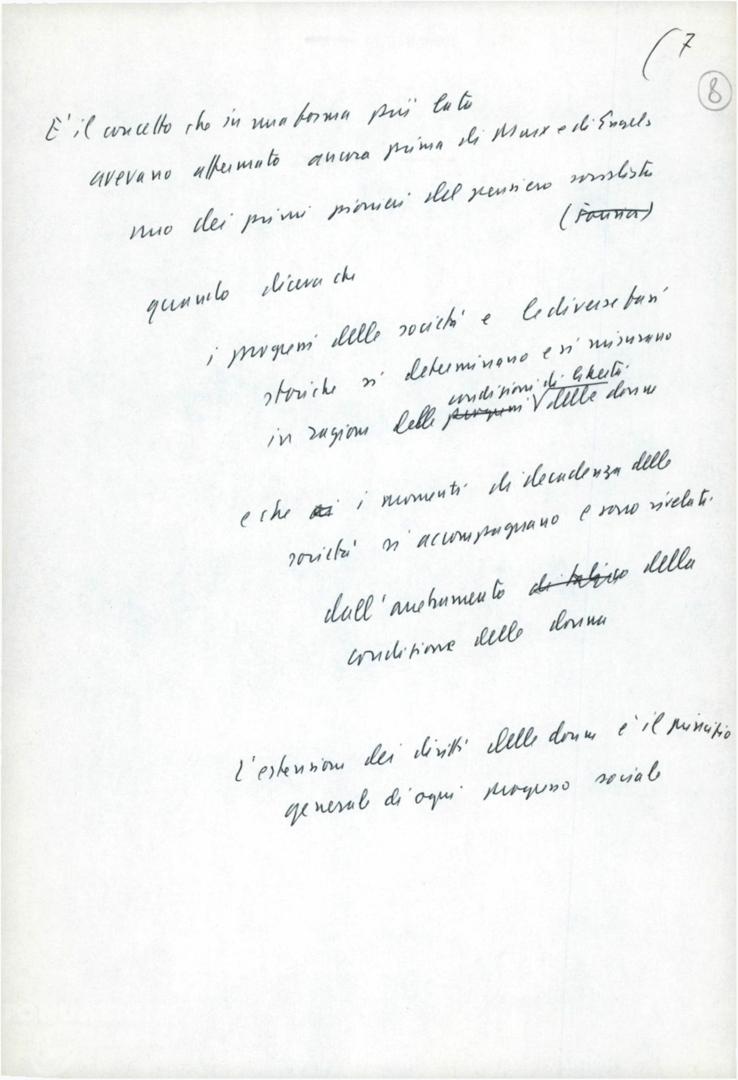 (7
8
E' il concetto che in una forma più lata
avevano affermato ancora prima di Marx e di Engels
uno dei primi pionieri del pensiero socialista
quando diceva che
i progressi delle società e le diverse fasi
storiche si determinano e si misurano
condizioni di libertà
in ragione delle progressi delle donne
e che i momenti di decadenza delle
società si accompagnano e sono rivelati
dall' della
condizione delle donna
L'estensione dei diritti delle donne è il principio
generale di ogni progresso sociale